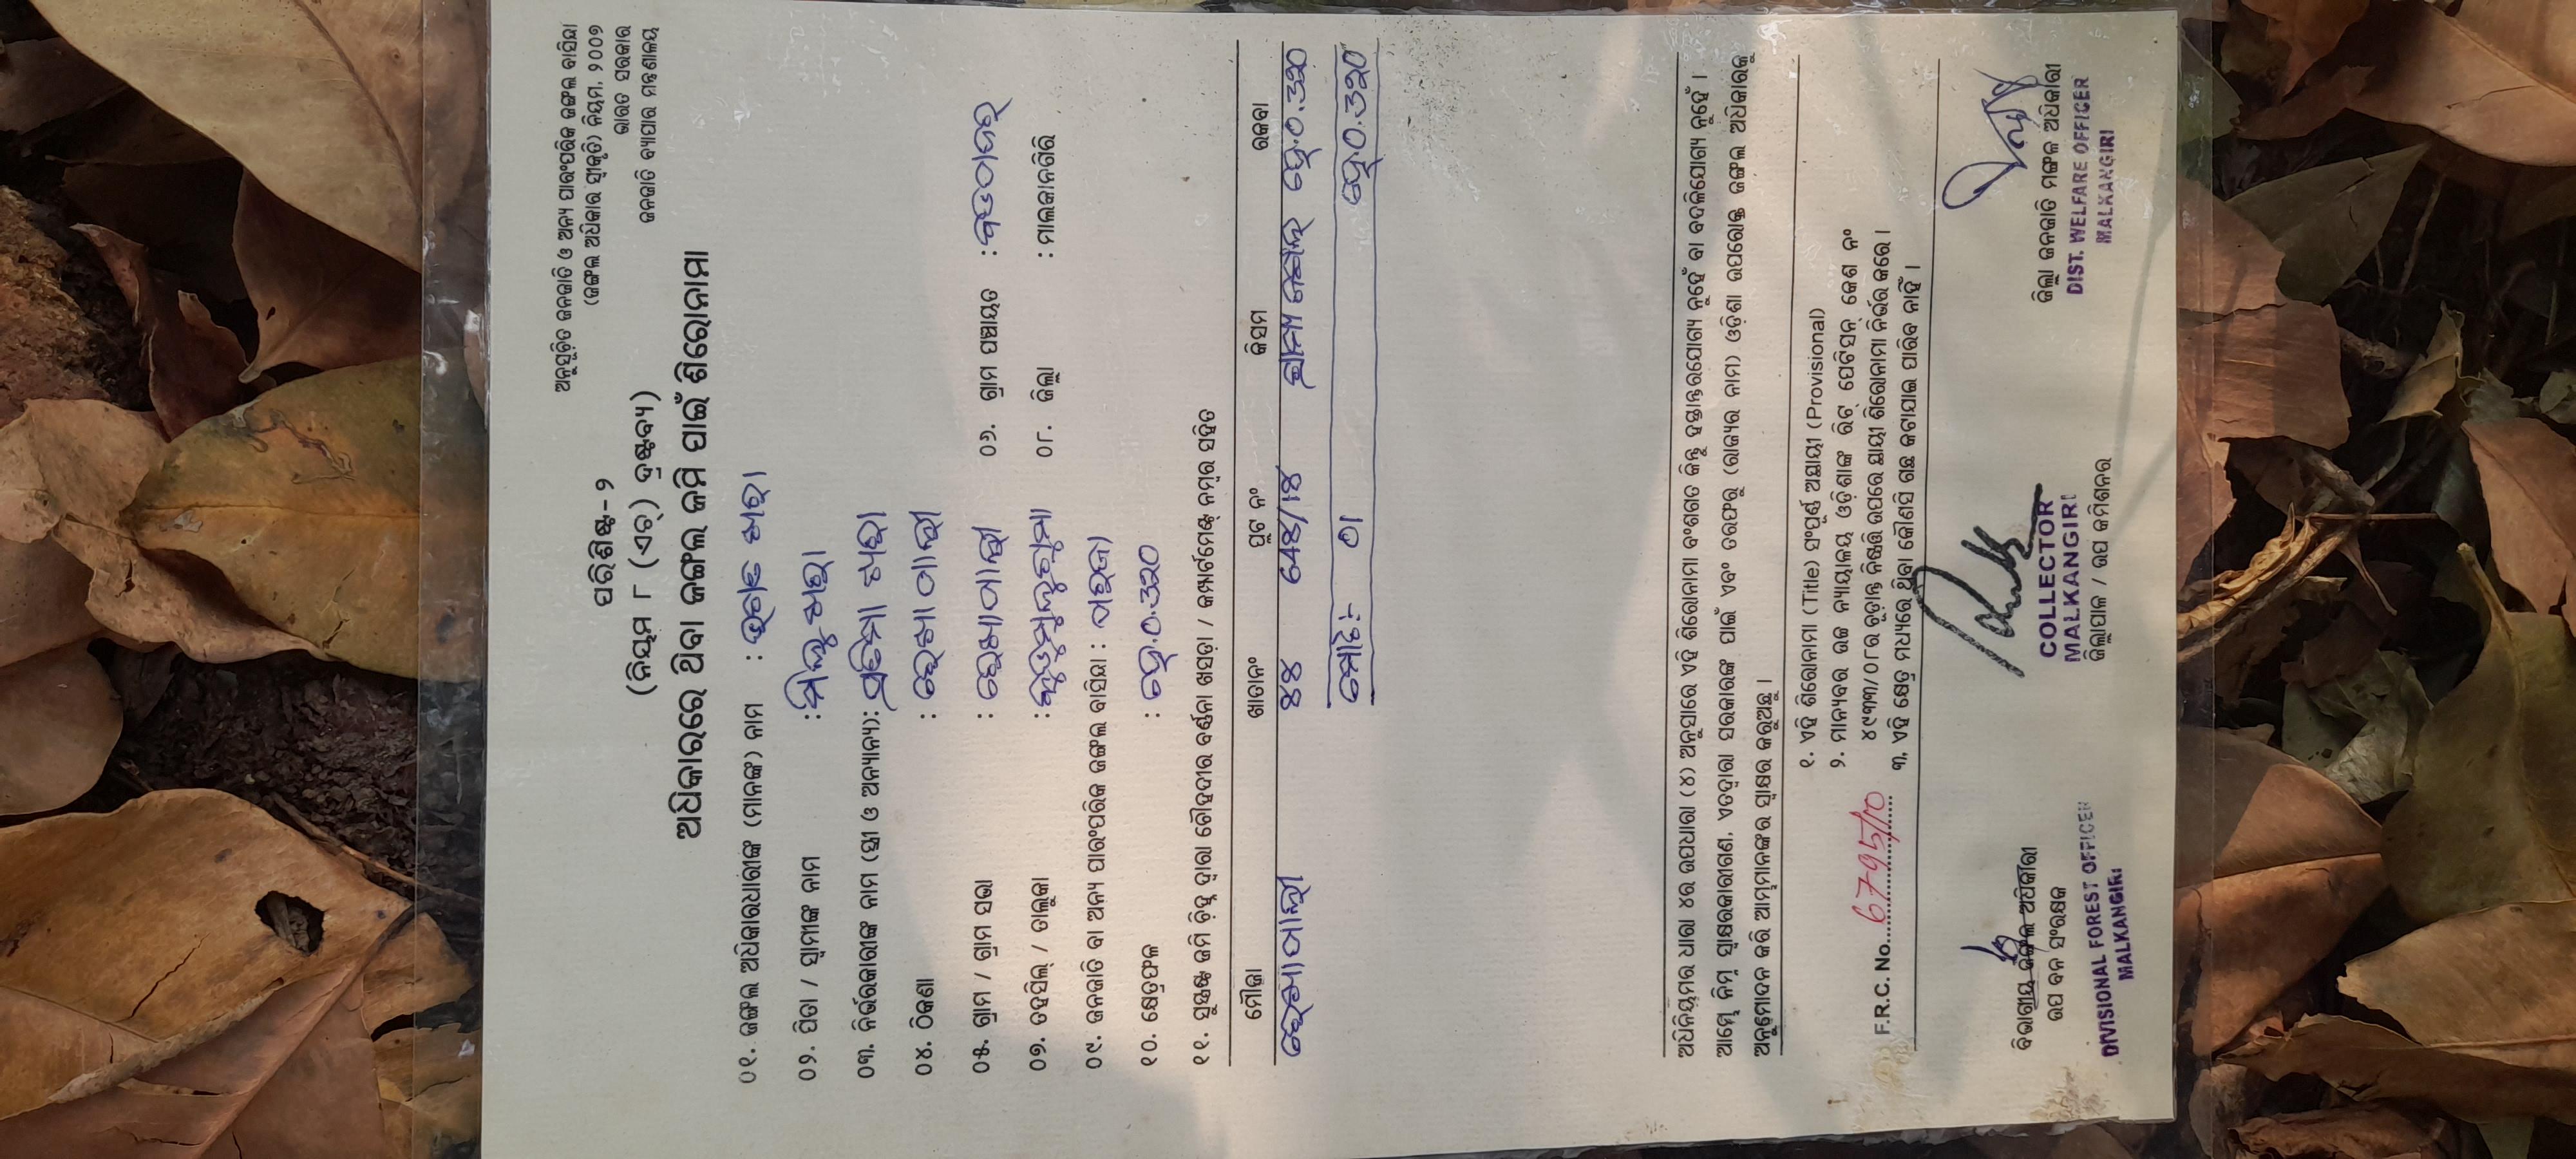 ଅନୁସୂଚିତ ଜନଜାତି ଓ ଅନ୍ୟ ପାରଂପରିକ ଜଙ୍ଗଲ ବାସିନ୍ଦା
(ଜଙ୍ଗଲ ଅଧିକାର ସ୍ୱୀକୃତି) ନିୟମ, ୨୦୦୭
ଭାରତ ସରକାର
ଜନଜାତି ବ୍ୟାପାର ମନ୍ତ୍ରଣାଳୟ
ପରିଶିଷ୍ଟ-୨
(ନିୟମ ୮ (ଏଚ୍) ଦ୍ରଷ୍ଟବ୍ୟ)
ଅଧିକାରରେ ଥିବା ଜଙ୍ଗଲ ଜମି ପାଇଁ ଶିରୋନାମା
୦୧. ଜଙ୍ଗଲ ଅଧିକାରଧାରୀଙ୍କ (ମାନଙ୍କ) ନାମ :
୦୨. ପିତା / ସ୍ୱାମୀଙ୍କ ନାମ :
୦୩. ନିର୍ଭରକାରୀଙ୍କ ନାମ (ସ୍ତ୍ରୀ ଓ ଅନ୍ୟାନ୍ୟ):
୦୪. ଠିକଣା :
୦୫. ଗ୍ରାମ / ଗ୍ରାମ ସଭା : ୦୬. ଗ୍ରାମ ପଞ୍ଚାୟତ :
୦୭. ତହସିଲ୍ / ତାଲୁକା : ୦୮. ଜିଲ୍ଲା : ମାଲକାନଗିରି
୦୯. ଜନଜାତି ବା ଅନ୍ୟ ପାରଂପରିକ ଜଙ୍ଗଲ ବାସିନ୍ଦା :
୧୦. କ୍ଷେତ୍ରଫଳ : ହେ.୦.୩୨୦
୧୧. ସୁସ୍ପଷ୍ଟ ଜମି ଚିହ୍ନ ଦ୍ୱାରା ଚୌହଦୀର ବର୍ଣ୍ଣନା ଖସଡ଼ା / କମ୍ପାର୍ଟମେଣ୍ଟ ନମ୍ବର ସହିତ
ମୌଜା ଖାତାନଂ ପ୍ଲଟ ନଂ କିସମ ରକବା
୪୪ ହେ.୦.୩୨୦
ମୋଟ:- ହେ.୦.୩୨୦
ଅଧିନିୟମର ଧାରା ୪ର ଉପଧାରା (୪) ଅନୁସାରେ ଏହି ଶିରୋନାମା ବଂଶଗତ କିନ୍ତୁ ହସ୍ତାନ୍ତରଯୋଗ୍ୟ ନୁହେଁ ବା ବଦଳିଯୋଗ୍ୟ ନୁହେଁ ।
ଆମ୍ଭେ ନିମ୍ନ ସ୍ୱାକ୍ଷରକାରୀଗଣ, ଏତଦ୍ଦ୍ୱାରା ସରକାରଙ୍କ ପାଇଁ ଏବଂ ତରଫରୁ (ରାଜ୍ୟର ନାମ) ଓଡ଼ିଶା ଉପରୋକ୍ତ ଜଙ୍ଗଲ ଅଧିକାରକୁ
ଅନୁମୋଦନ କରି ଆମ୍ଭମାନଙ୍କର ସ୍ୱାକ୍ଷର କରୁଅଛୁ ।
୧. ଏହି ଶିରୋନାମା (Title) ସଂପୂର୍ଣ୍ଣ ଅସ୍ଥାୟୀ (Provisional)
୨. ମାନ୍ୟବର ଉଚ୍ଚ ନ୍ୟାୟାଳୟ ଓଡ଼ିଶାଙ୍କ ରିଟ୍ ପେଟିସନ୍ କେଶ ନଂ
୪୯୩୩/୦୮ର ଚୂଡ଼ାନ୍ତ ନିଷ୍ପତ୍ତି ଉପରେ ସ୍ଥାୟୀ ଶିରୋନାମା ନିର୍ଭର କରେ ।
୩. ଏହି କ୍ଷେତ୍ର ମଧ୍ୟରେ ଥିବା କୌଣସି ଗଛ କଟାଯାଇ ପାରିବ ନାହିଁ ।
F.R.C. No. 6795/10
ବିଭାଗୀୟ ଜଙ୍ଗଲ ଅଧିକାରୀ
ଉପ ବନ ସଂରକ୍ଷକ
DIVISIONAL FOREST OFFICER
MALKANGIRI
COLLECTOR
MALKANGIRI
ଜିଲ୍ଲାପାଳ / ଉପ କମିଶନର
ଜିଲ୍ଲା ଜନଜାତି ମଙ୍ଗଳ ଅଧିକାରୀ
DIST. WELFARE OFFICER
MALKANGIRI